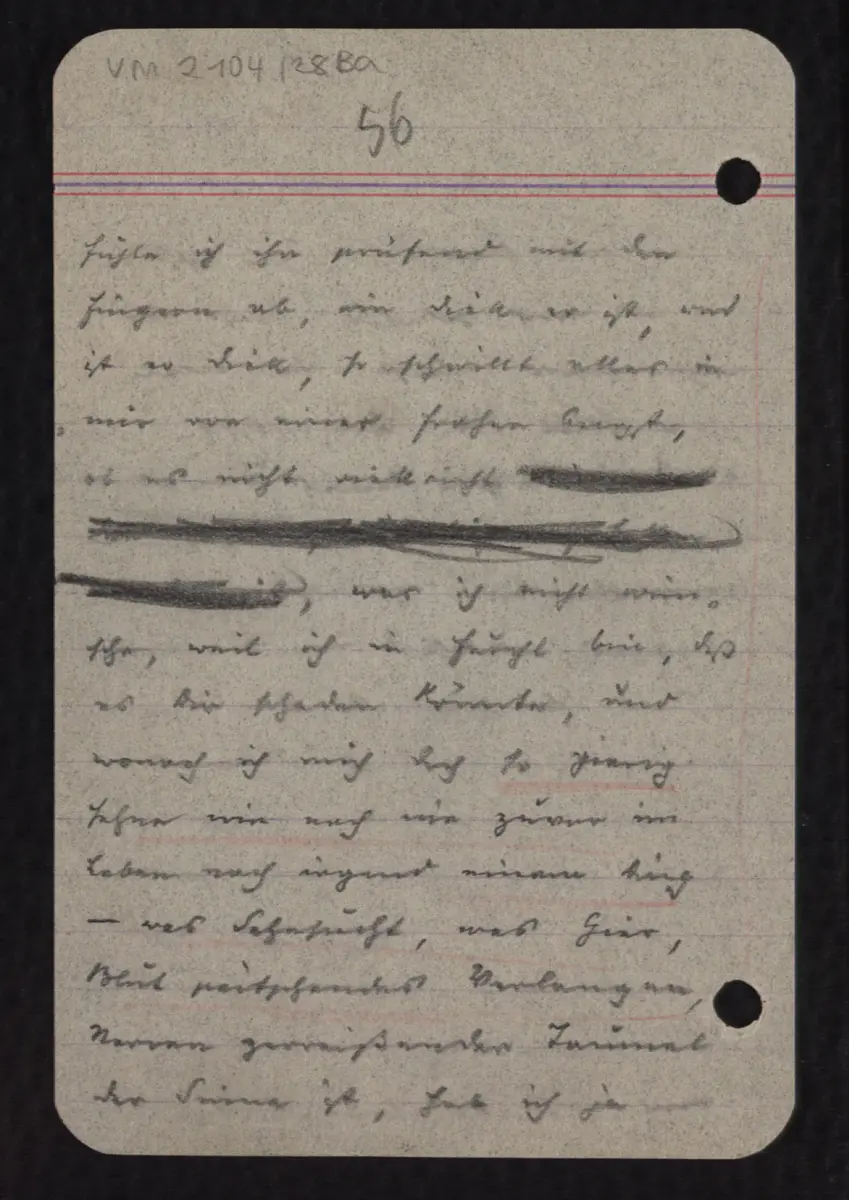 VM 2104/28Ba
56
fühle ich ihn prüfend mit den
Fingern ab, wie dick er ist, und
ist er dick, so schwillt alles in
mir von einer frohen Angst,
ob es nicht vielleicht
, was ich nicht wün-
sche, weil ich in Furcht bin, daß
es Dir schaden könnte, und
wonach ich mich doch so gierig
sehne wie noch nie zuvor im
Leben nach irgend einem Ding
– was Sehnsucht, was Gier,
Blut peitschendes Verlangen,
Nerven zerreißender Taumel
der Sinne ist, hab ich ja